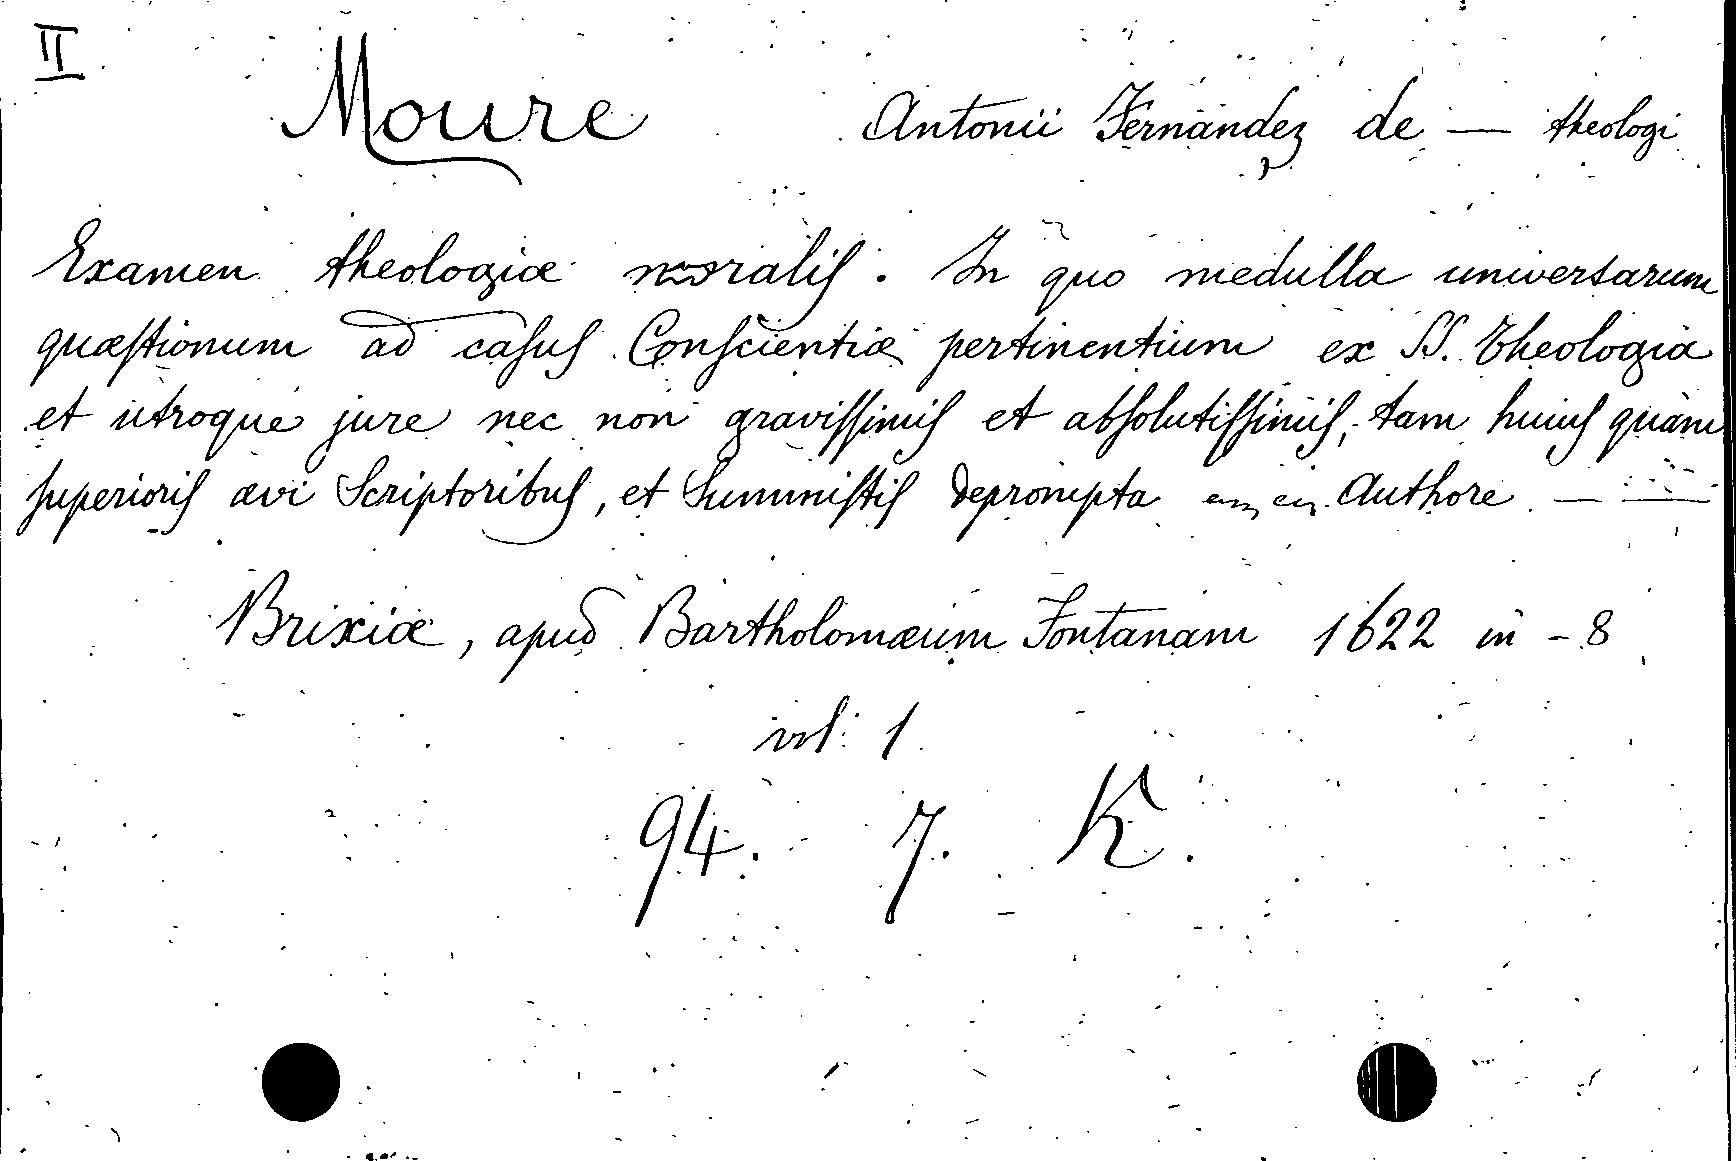 II
Moure Antonii Fernández de — theologi
Examen theologiæ moralis. In quo medulla universarum
quæstionum ad casus Conscientiæ pertinentium ex SS. Theologia
et utroque jure nec non gravissimis et absolutissimis, tam huius quàm
superioris ævi Scriptoribus, et Summistis deprompta Authore — —
Brixiæ, apud Bartholomæum Fontanam 1622 in-8
vol: 1
94. 7. K.